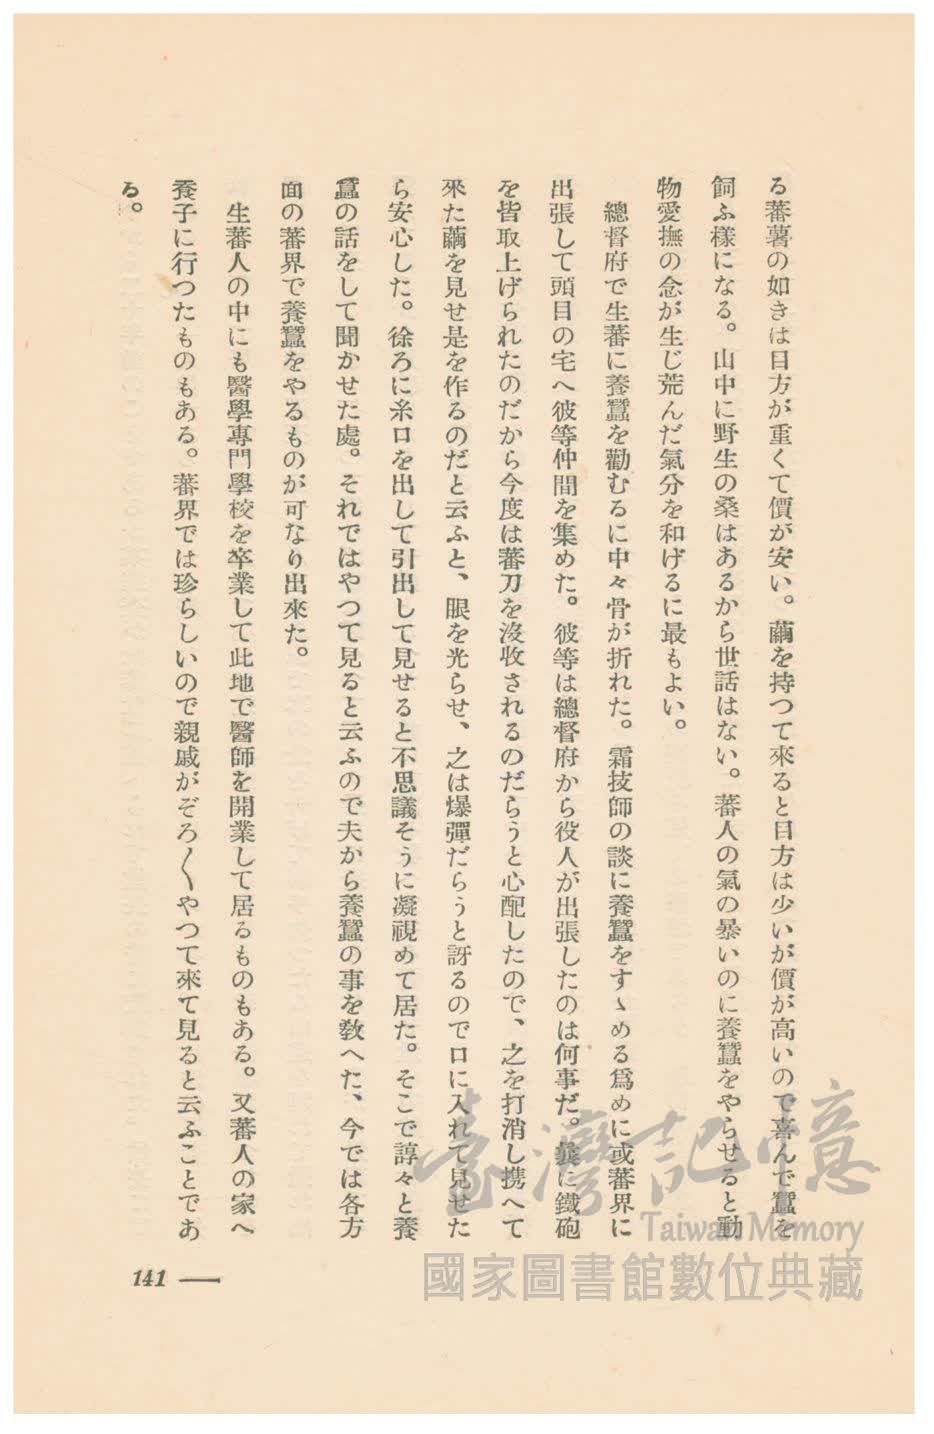 る蕃薯の如きは目方が重くて價が安い。繭を持つて來ると目方は少いが價が高いので喜んで蠶を
飼ふ樣になる。山中に野生の桑はあるから世話はない。蕃人の氣の暴いのに養蠶をやらせると動
物愛撫の念が生じ荒んだ氣分を和げるに最もよい。
總督府で生蕃に養蠶を勸むるに中々骨が折れた。霜技師の談に養蠶をすゝめる爲めに或蕃界に
出張して頭目の宅へ彼等仲間を集めた。彼等は總督府から役人が出張したのは何事だ。曩に鐵砲
を皆取上げられたのだから今度は蕃刀を沒收されるのだらうと心配したので、之を打消し携へて
來た繭を見せ是を作るのだと云ふと、眼を光らせ、之は爆彈だらうと訝るので口に入れて見せた
ら安心した。徐ろに糸口を出して引出して見せると不思議そうに凝視めて居た。そこで諄々と養
蠶の話をして聞かせた處。それではやつて見ると云ふので夫から養蠶の事を敎へた、今では各方
面の蕃界で養蠶をやるものが可なり出來た。
生蕃人の中にも醫學專門學校を卒業して此地で醫師を開業して居るものもある。又蕃人の家へ
養子に行つたものもある。蕃界では珍らしいので親戚がぞろ〱やつて來て見ると云ふことであ
る。
141
臺灣記憶
Taiwan Memory
國家圖書館數位典藏